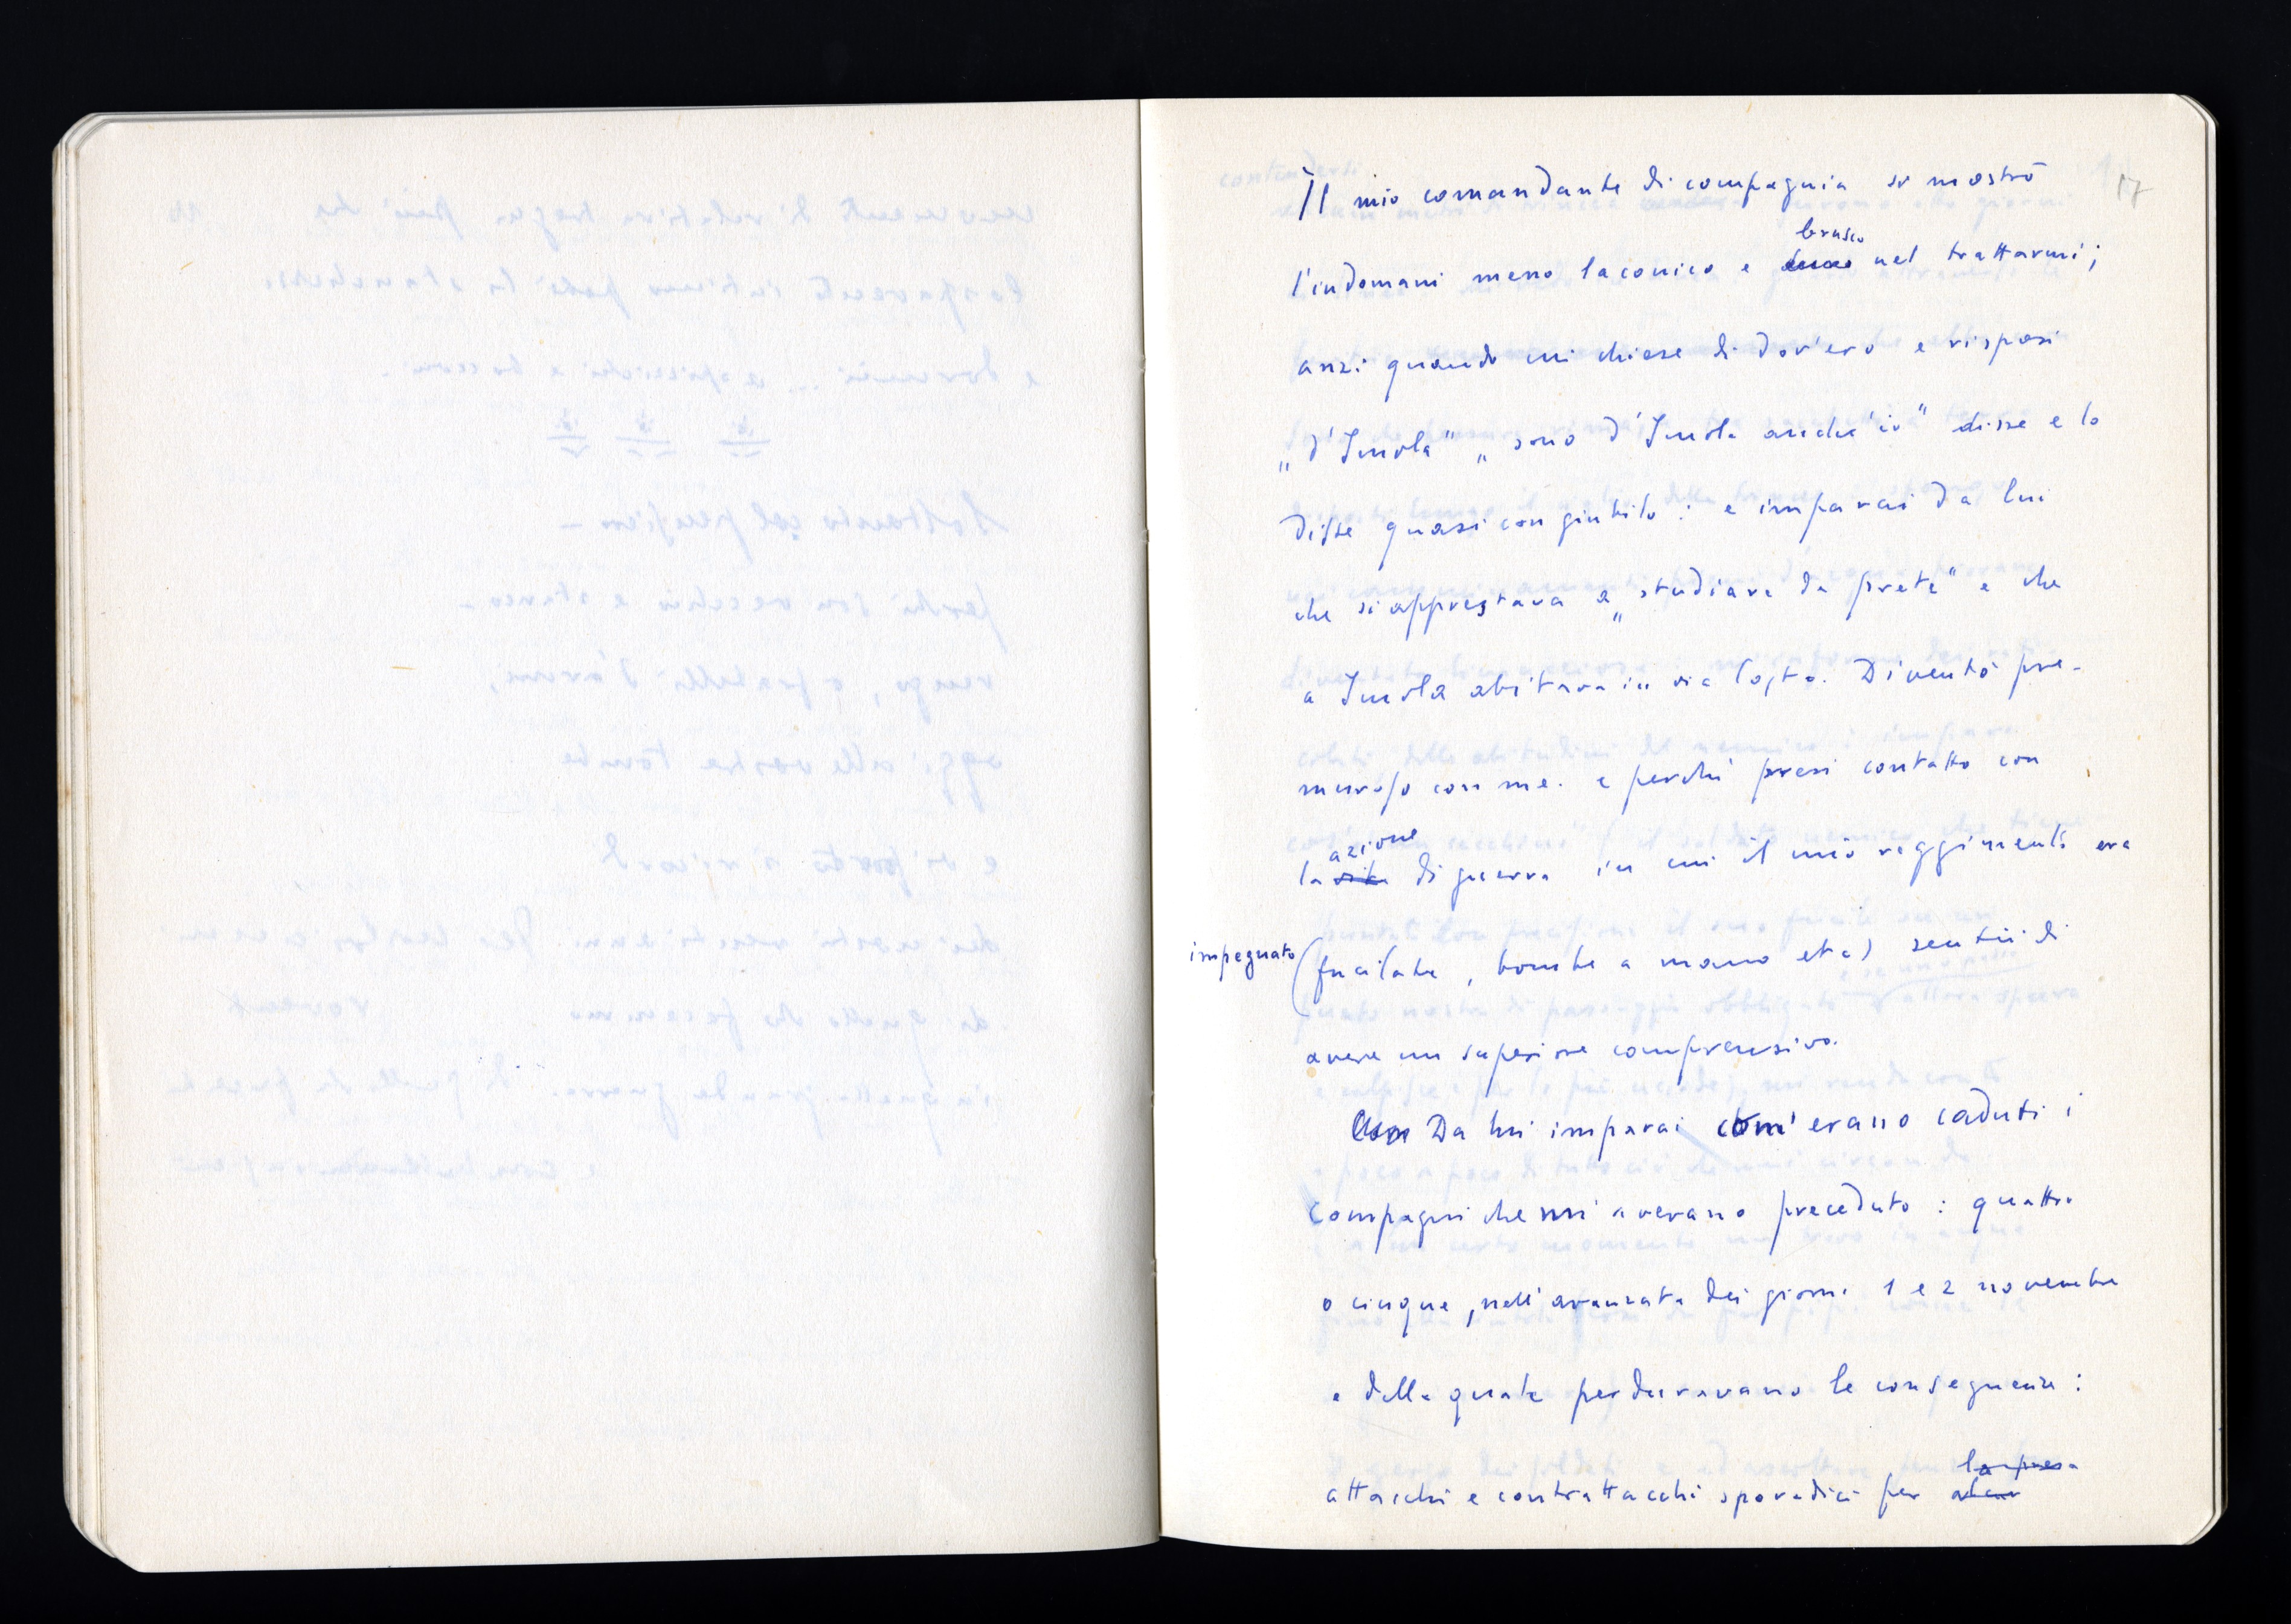 17
Il mio comandante di compagnia si mostrò
brusco
l'indomani meno laconico e nel trattarmi;
anzi quando mi chiese di dov'ero e risposi
„d'Imola" „sono d'Imola anch'io" disse e lo
disse quasi con giubilo: e imparai da lui
che si apprestava a „studiare da prete" e che
a Imola abitava in via. Diventò pre-
muroso con me. e perché presi contatto con
azione
la vita di guerra in cui il mio reggimento era
impegnato (fucilate, bombe a mano etc) sentii di
avere un superiore comprensivo.
Da lui imparai com'erano caduti i
compagni che mi avevano preceduto: quattro
o cinque, nell'avanzata dei giorni 1 e 2 novembre
e della quale perduravano le conseguenze:
la presa
attacchi e contrattacchi sporadici per